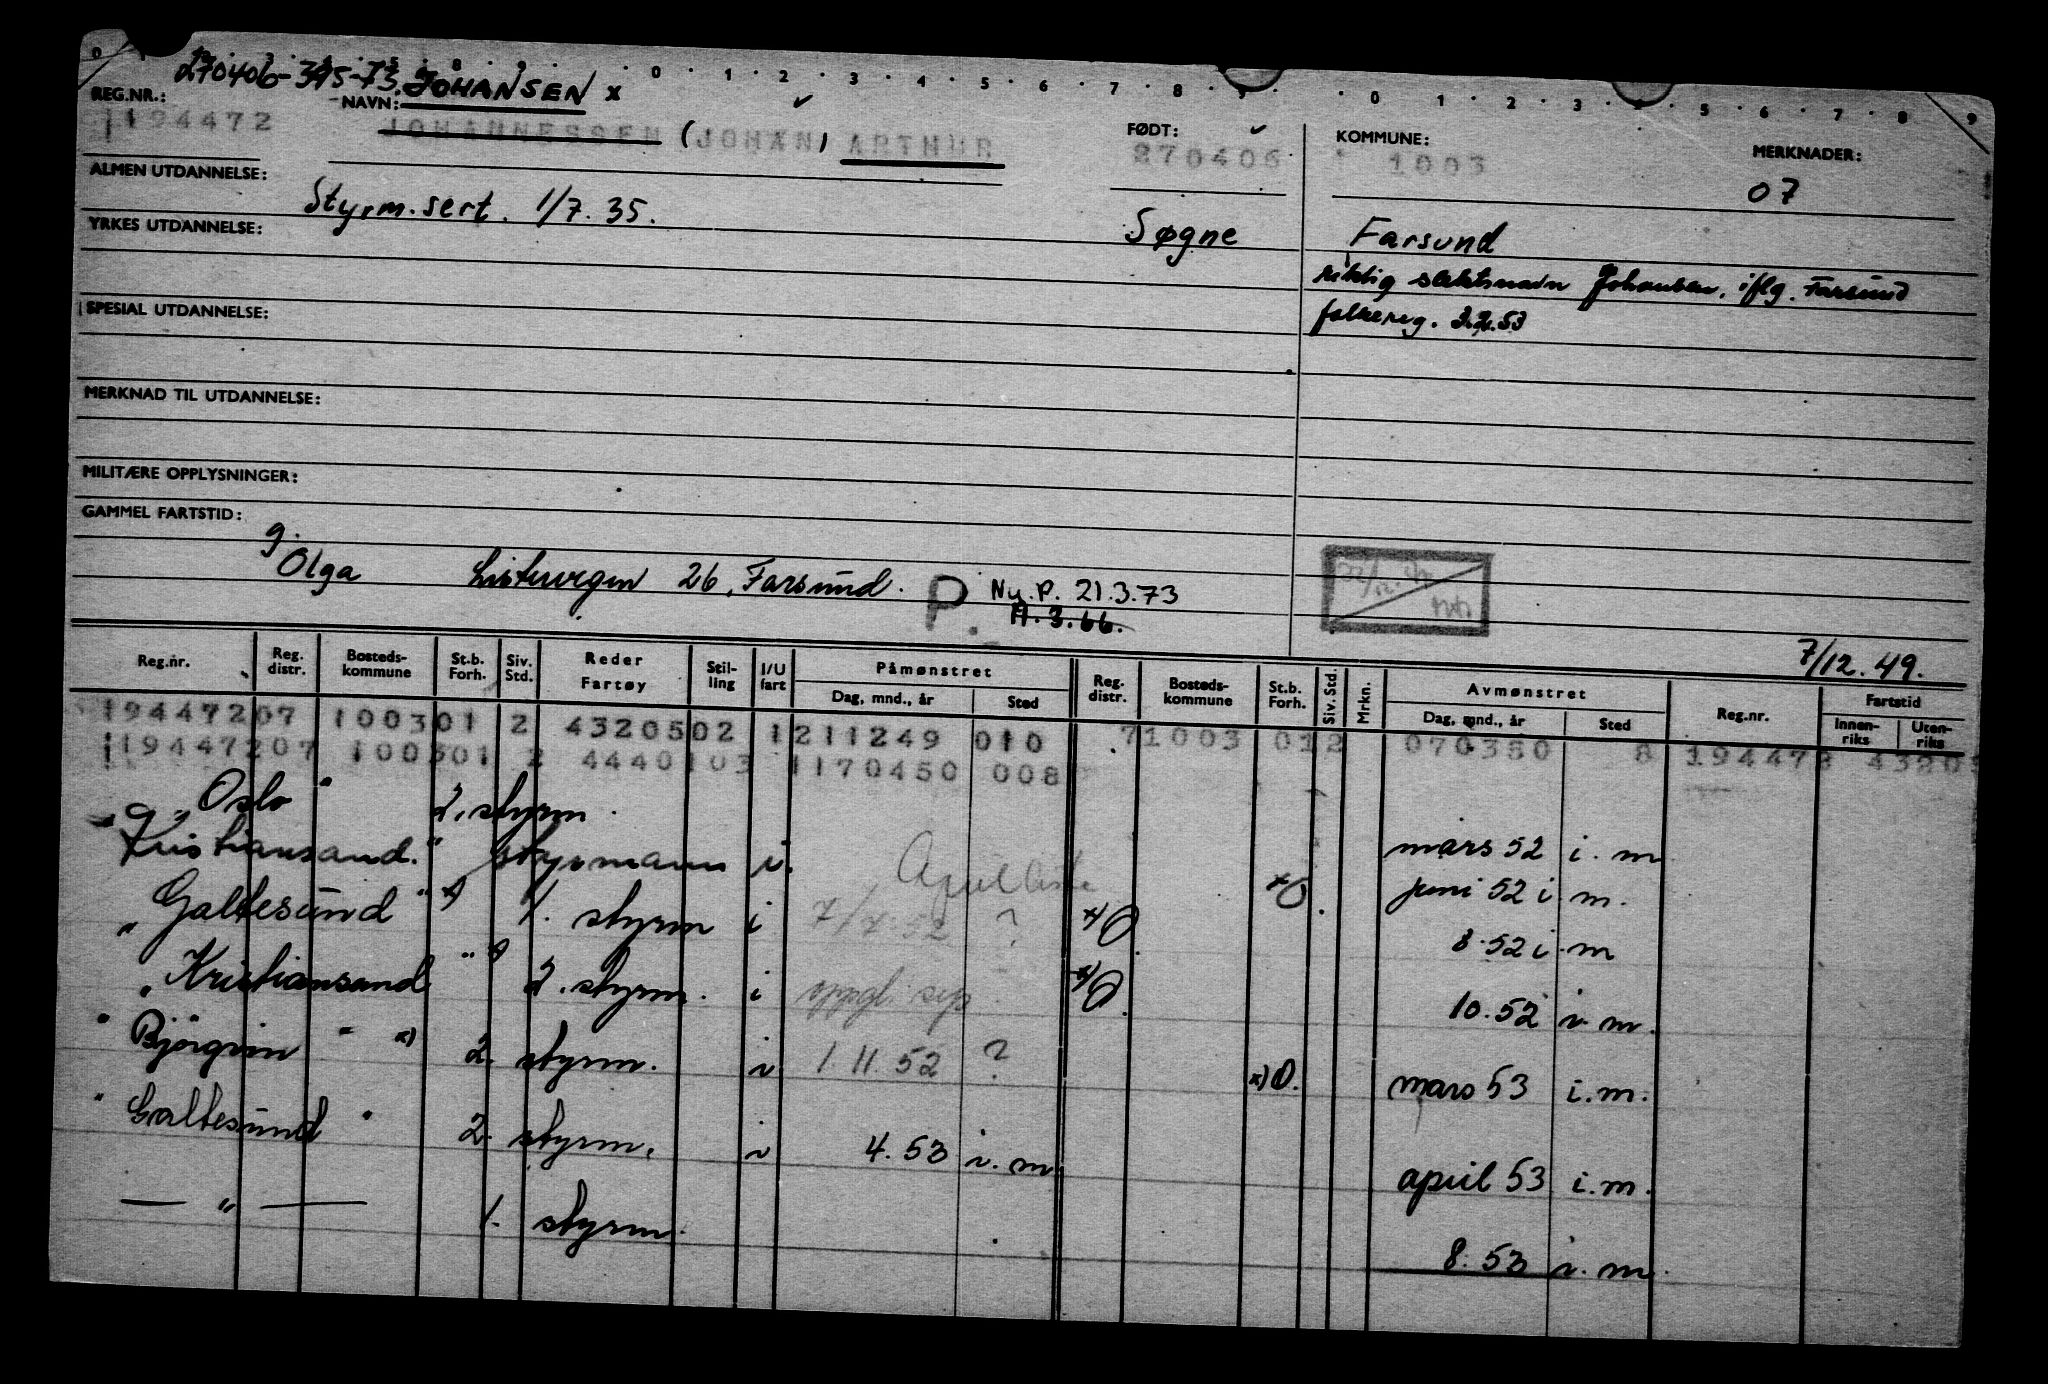 0 1 2 3 4 5 6 7 8 9 0 1 2 3 4 5 6 7 8 9
JOHANSEN x
REG.NR.: NAVN: FØDT: KOMMUNE: MERKNADER:
194472 JOHANNESSEN (JOHAN) ARTHUR 270406 1003 07
ALMEN UTDANNELSE:
Styrm.sert. 1/7.35. Søgne Farsund
YRKES UTDANNELSE:
riktig slektsnavn Johansen, iflg. Farsund
folkereg. 2.2.53
SPESIAL UTDANNELSE:
MERKNAD TIL UTDANNELSE:
MILITÆRE OPPLYSNINGER:
GAMMEL FARTSTID:
g.
Olga 26, Farsund. P Ny.P. 21.3.73
A.3.66.
7/12.49.
Reg.nr. Reg. distr. Bosteds-kommune St.b. Forh. Siv. Std. Reder Fartøy Stil-ling I/U fart Påmønstret Dag, mnd., år Sted Reg. distr. Bosteds-kommune St.b. Forh. Siv. Std. Mrkn. Avmønstret Dag, mnd., år Sted Reg.nr. Fartstid Innen-riks Uten-riks
19447207 100301 2 4320502 1211249 010 71003 012 070350 8
19447207 100301 2 4440103 1170450 008
" Oslo " 2. styrm. mars 52 i. m
" Kristiansand. " styrmann i. juni 52 i. m.
" Galtesund " x) 1. styrm i 7/7.52 ? x) 8.52 i. m
" Kristiansand " x) 2. styrm. i x) 10.52 i. m.
" Björgvin " x) 2. styrm. i 1.11.52 ? x) mars 53 i. m.
" Galtesund " 2. styrm. i 4.53 i. m. april 53 i. m.
— " — 1. styrm. 8.53 i. m.